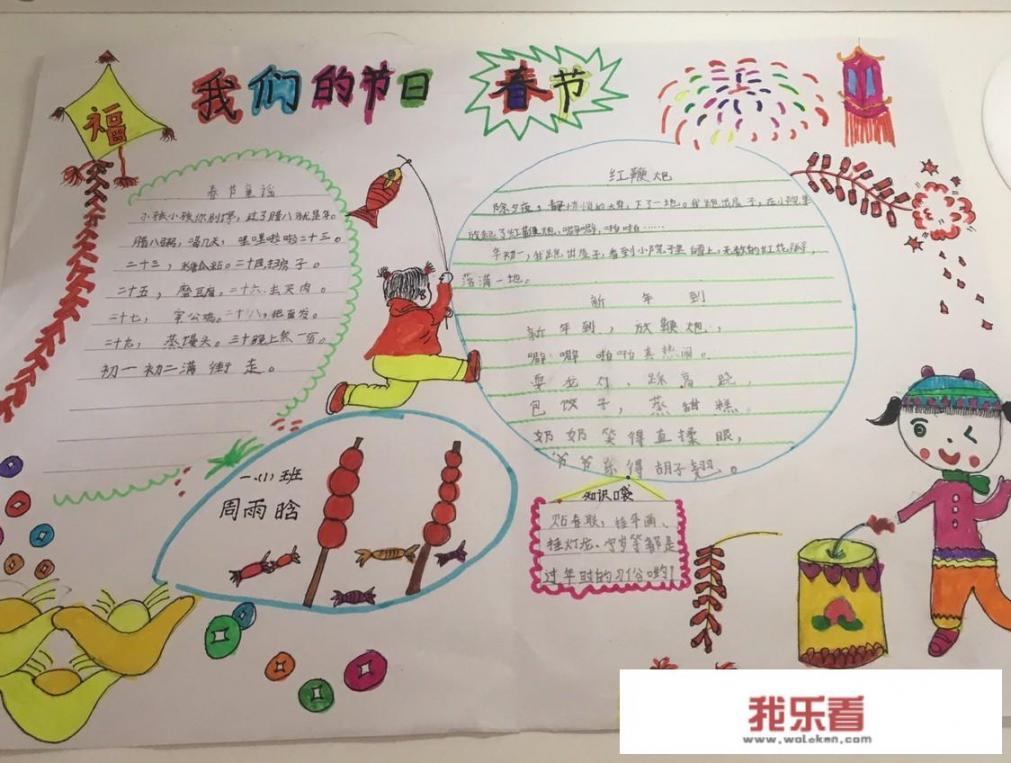 我们的节日 春节
福
春节童谣
小孩小孩你别馋，过了腊八就是年。
腊八粥，喝几天，哩哩啦啦二十三。
二十三，糖瓜粘。二十四扫房子。
二十五，磨豆腐，二十六去买肉。
二十七，宰公鸡。二十八，把面发。
二十九，蒸馒头。三十晚上熬一宿。
初一初二满街走。
红鞭炮
除夕夜，静悄悄的，下了一地。我跑出房子，在小院里
放起了红鞭炮，噼噼啪啪……
年初一，我跑出房子，看到小院子里，无数的红花瓣，
落满一地。
新年到
新年到，放鞭炮，
噼噼啪啪真热闹。
耍龙灯，踩高跷，
包饺子，蒸甜糕。
奶奶笑得直揉眼，
爷爷乐得胡子翘。
一.(1)班
周雨晗
知识袋
贴春联，挂年画、
挂灯笼、守岁等都是
过年时的习俗哟！
我乐看
www.woleken.com